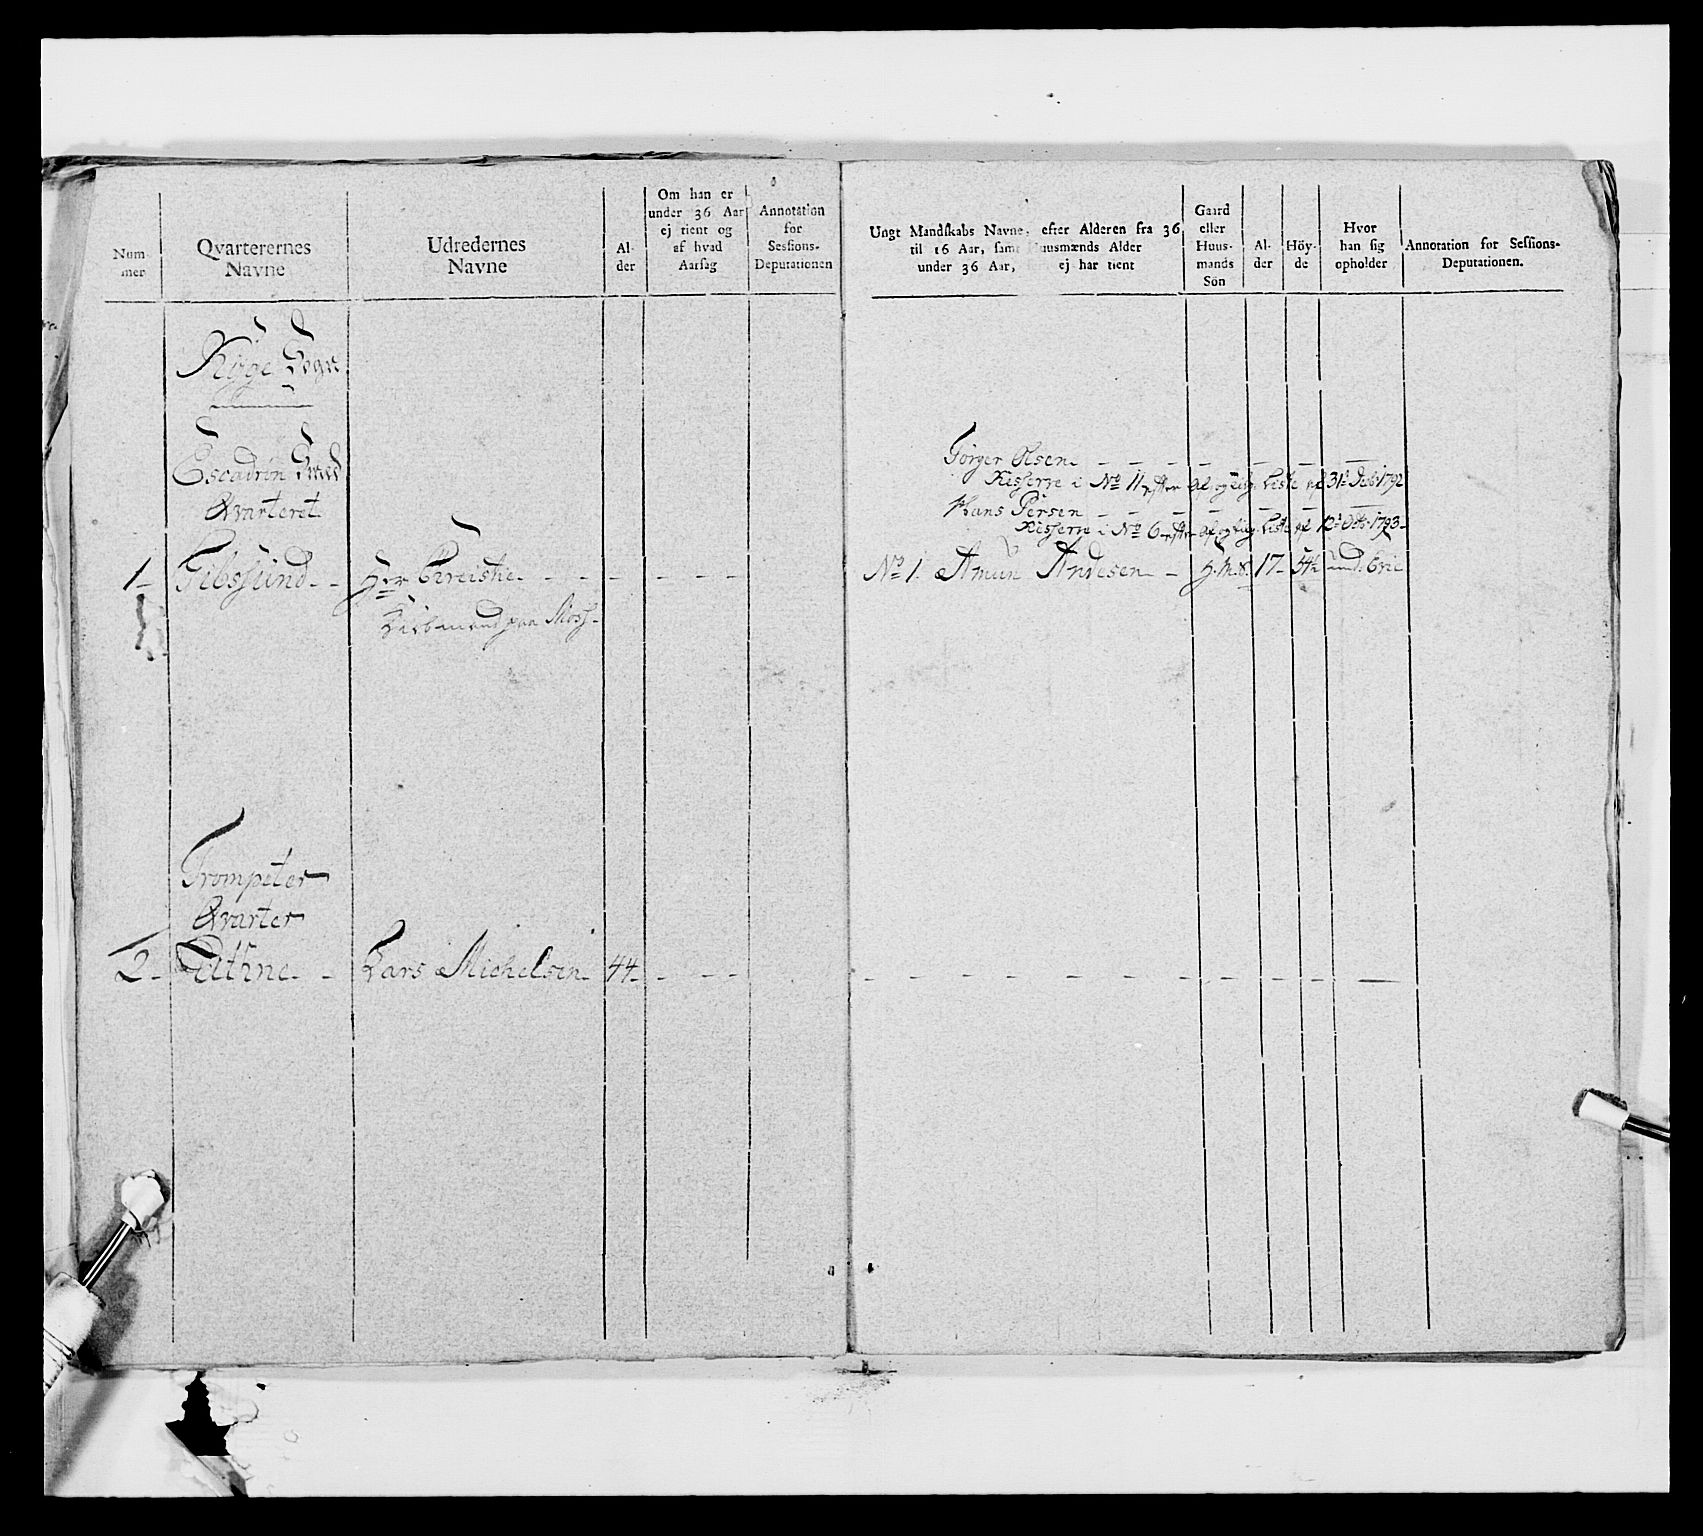 Num-
mer
Qvarterernes
Navne
Udredernes
Navne
Al-
der
Om han er
under 36 Aar
ej tient og
af hvad
Aarsag
Annotation
for
Sessions-
Deputationen
Ungt Mandskabs Navne, efter Alderen fra 36
til 16 Aar, samt Huusmænds Alder
under 36 Aar, ej har tient
Gaard
eller
Huus-
mands
Sön
Al-
der
Höy-
de
Hvor
han sig
opholder
Annotation for Sessions-
Deputationen.
Rygge Sogn
Escadron
Qvarteret
Jörger Olsen
i No 11 efter Liste af 31te 1792
Hans Persen
i No 6 efter Liste af 12te 1793
1 - Hr Chreistie - - - - - -
paa Moss -
No 1. Amun Andesen - - H.M.S. 17 - 54½
Trompeter
Qvarter
2 - Lars Michelsen 44 - - - -